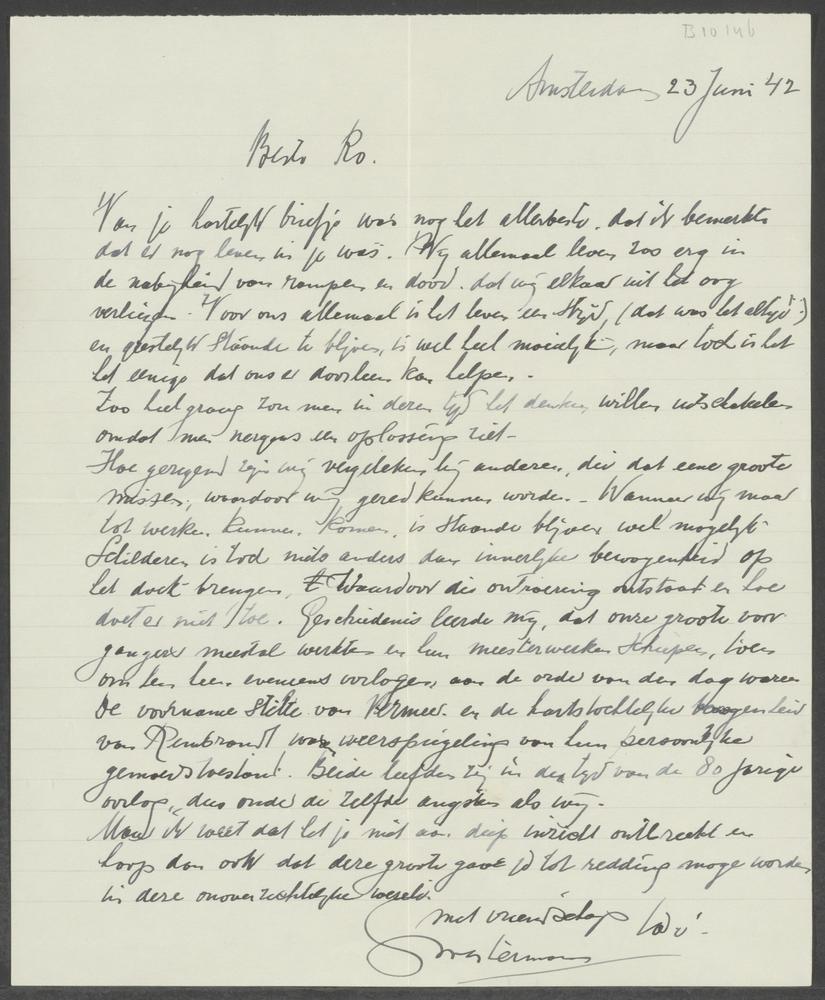 B10146
Amsterdam 23 Juni '42
Beste Ko.
Van je hartelijk briefje was nog het allerbeste, dat ik bemerkte
dat er nog leven in je was. Wij allemaal leven zoo erg in
de nabijheid van rampen en dood. dat wij elkaar uit het oog
verliezen. Voor ons allemaal is het leven een strijd, (dat was het altijd!)
en geestelijk staande te blijven, is wel heel moeilijk, maar toch is het
het eenige dat ons er doorheen kan helpen.
Zoo heel graag zou men in dezen tijd het denken willen uitschakelen
omdat men nergens een oplossing ziet-
Hoe gezegend zijn wij vergeleken bij anderen, die dat eene groote
missen, waardoor wij gered kunnen worden. - Wanneer wij maar
tot werken kunnen komen, is staande blijven wel mogelijk
Schilderen is toch niets anders dan innerlijke bewogenheid op
het doek brengen, Waardoor die ontroering ontstaat en hoe
doet er niet toe. Geschiedenis leerde mij, dat onze groote voor
gangers meestal werkten en hun meesterwerken schiepen, toen
om hen heen eveneens oorlogen aan de orde van den dag waren
De voorname stilte van Vermeer en de hartstochtelijke
van Rembrandt was weerspiegeling van hun persoonlijke
gemoedstoestand. Beide leefden zij in den tijd van de 80 jarige
oorlog, dus onder de zelfde angsten als wij.
ik weet dat het je niet aan diep inzicht ontbreekt en
hoop dan ook dat deze groote gave je tot redding moge worden
in deze onoverzichtelijke wereld.
met vriendschap
Westermann